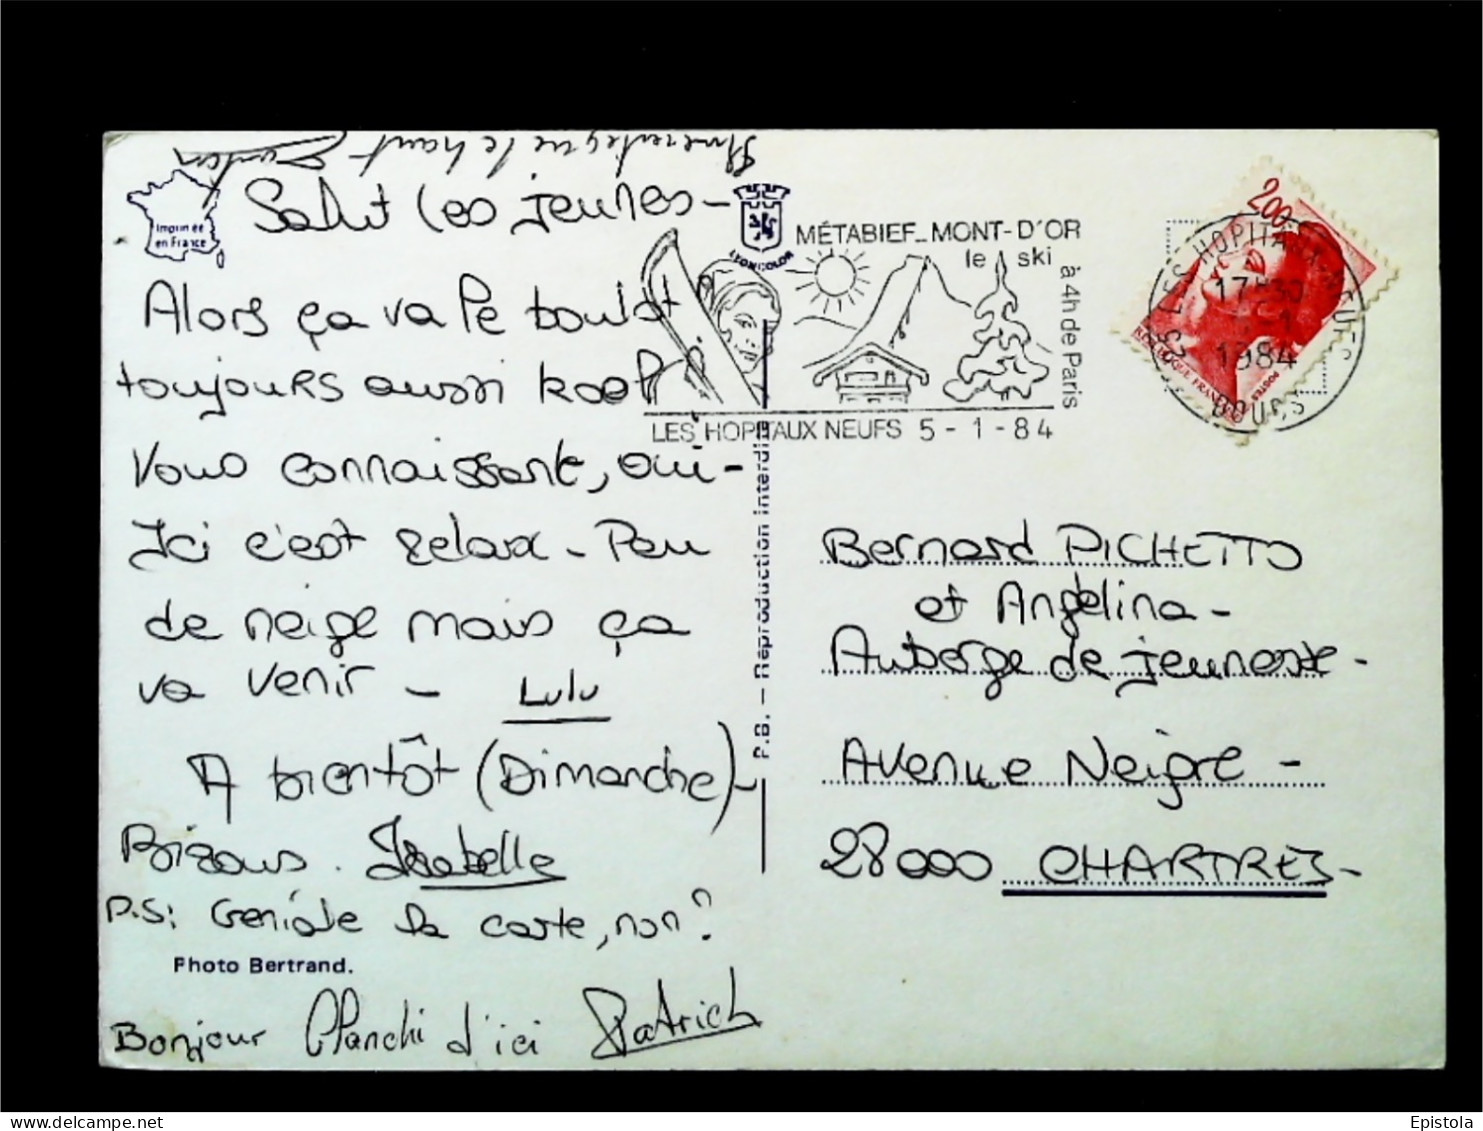 Salut les jeunes -
Alors ça va le boulot ?
toujours aussi kool ?
Vous connaissant, oui -
Ici c'est relax - Peu
de neige mais ça
va venir - Lulu
A bientôt (Dimanche) -
Bizous. Isabelle
P.S: Géniale la carte, non?
Photo Bertrand.
Bonjour d'ici Patrick
Imprimée
en France
LYONCOLOR
P.B. - Reproduction interdite
MÉTABIEF_MONT-D'OR
le ski
à 4h de Paris
LES HOPITAUX NEUFS 5-1-84
25 LES HOPITAUX-NEUFS
17H30
1984
DOUBS
2,00
REPUBLIQUE FRANÇAISE
POSTES
Bernard PICHETTO
et Angélina -
Auberge de jeunesse -
Avenue Neigre -
28000 CHARTRES -
delcampe.net
Epistola